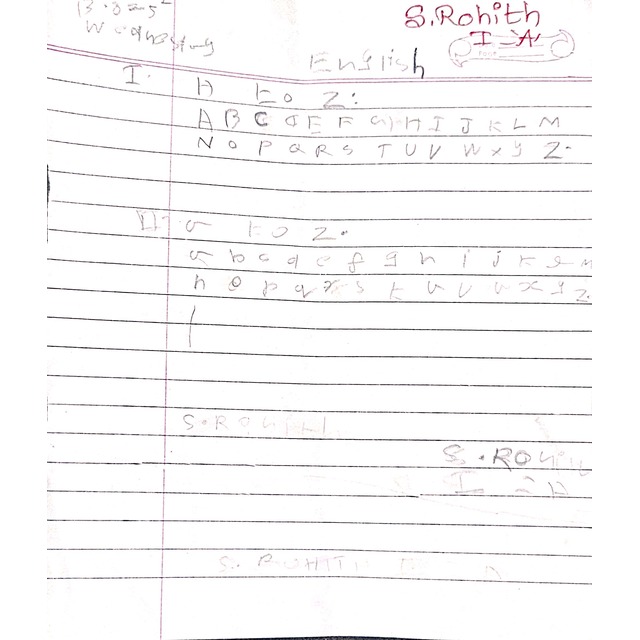 S. Rohith
I - A
English
I. A to Z:
A B C d E F G H I J K L M
N O P Q R S T U V W X y Z.
II a to Z.
a b c d e f g h i j k l m
n o p q r s t u v w x y z
S. ROHITH
S. ROHITH
I - A
S. ROHITH